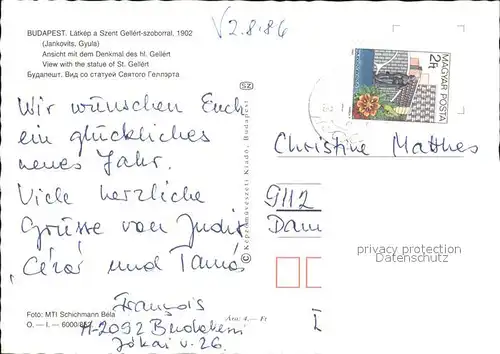 V2.8.86
BUDAPEST. Látkép a Szent Gellért-szoborral, 1902
(Jankovits, Gyula)
Ansicht mit dem Denkmal des hl. Gellért
View with the statue of St. Gellért
Будапешт. Вид со статуей Святого Геллэрта
2Ft
MAGYAR POSTA
SZ
Wir wünschen Euch
ein glückliches
neues Jahr.
Viele herzliche
Grüsse von Judit
Cézár und Tamás
François
H-2092 Budakeszi
Jókai u. 26.
© Képzőművészeti Kiadó, Budapest
Christine Matthes
9112
Dam
privacy protection
Datenschutz
Foto: MTI Schichmann Béla
O. — I. — 6000/852
Ára: 4.— Ft